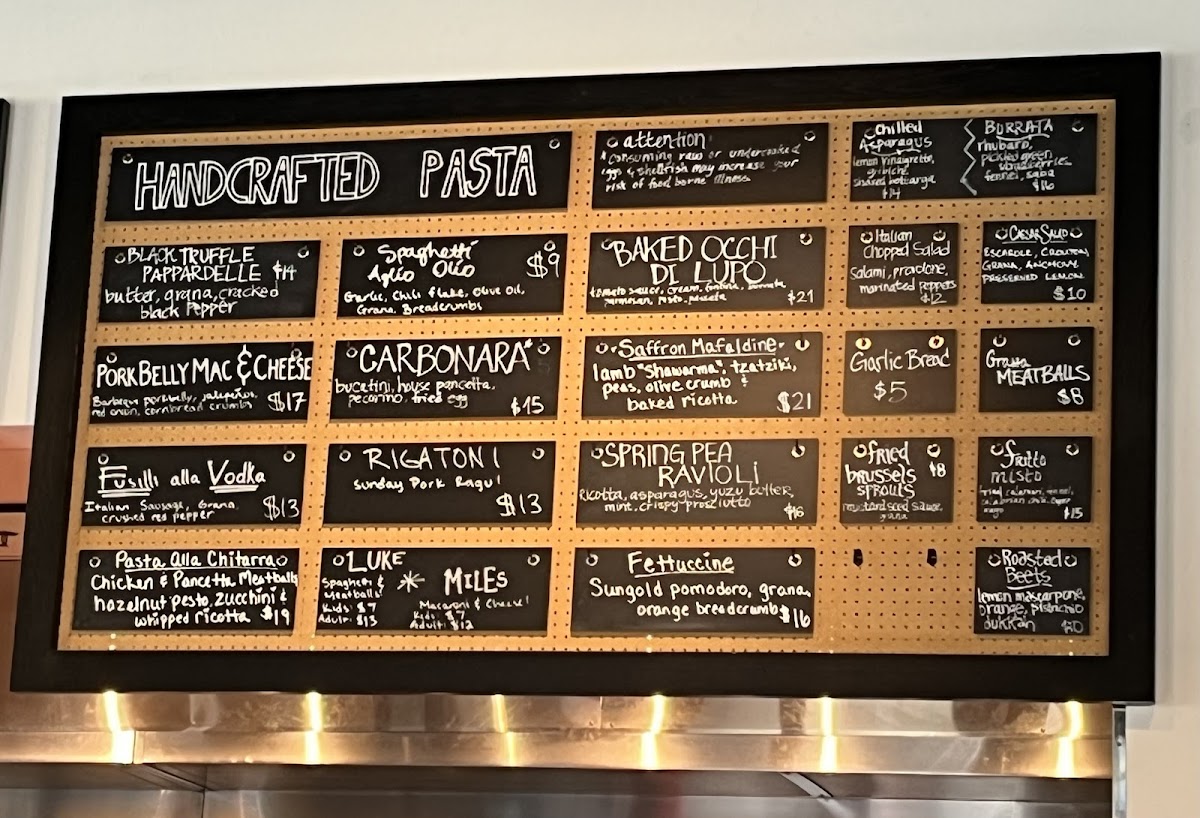 HANDCRAFTED PASTA
attention:
*Consuming raw or undercooked
eggs & shellfish may increase your
risk of food borne illness
Chilled
Asparagus
lemon vinaigrette,
gribiche,
shaved bottarga
$14
BURRATA
rhubarb,
pickled green
strawberries,
fennel, saba
$16
BLACK TRUFFLE
PAPPARDELLE $14
butter, grana, cracked
black pepper
Spaghetti
Aglio Olio $9
Garlic, Chili flake, Olive Oil,
Grana, Breadcrumbs
BAKED OCCHI
DI LUPO
tomato sauce, cream, fontina,
parmesan, pesto,
$21
Italian
Chopped Salad
Salami, provolone,
marinated peppers
$12
CAESAR SALAD
ESCAROLE, CROUTON,
GRANA, ANCHOVY,
PRESERVED LEMON
$10
PORK BELLY MAC & CHEESE
Barbeque porkbelly, jalapeños,
red onion, cornbread crumbs $17
CARBONARA*
bucatini, house pancetta,
pecorino, fried egg
$15
Saffron Mafaldine
lamb "Shawarma", tzatziki,
peas, olive crumb &
baked ricotta $21
Garlic Bread
$5
Grana
MEATBALLS
$8
Fusilli alla Vodka
Italian Sausage, Grana,
crushed red pepper $13
RIGATONI
Sunday Pork Ragu!
$13
SPRING PEA
RAVIOLI
ricotta, asparagus, yuzu butter,
mint, crispy prosciutto $16
fried
brussels $8
sprouts
mustard seed sauce,
grana
fritto
misto
fried calamari,
calabrian chili
mayo $15
Pasta Alla Chitarra
Chicken & Pancetta Meatballs
hazelnut pesto, zucchini &
whipped ricotta $19
LUKE
Spaghetti &
Meatballs
Kids: $7
Adult: $13
MILES
Macaroni & Cheese!
Kids: $7
Adult: $12
Fettuccine
Sungold pomodoro, grana,
orange breadcrumbs $16
Roasted
Beets
lemon mascarpone,
orange, pistachio
dukkah $10